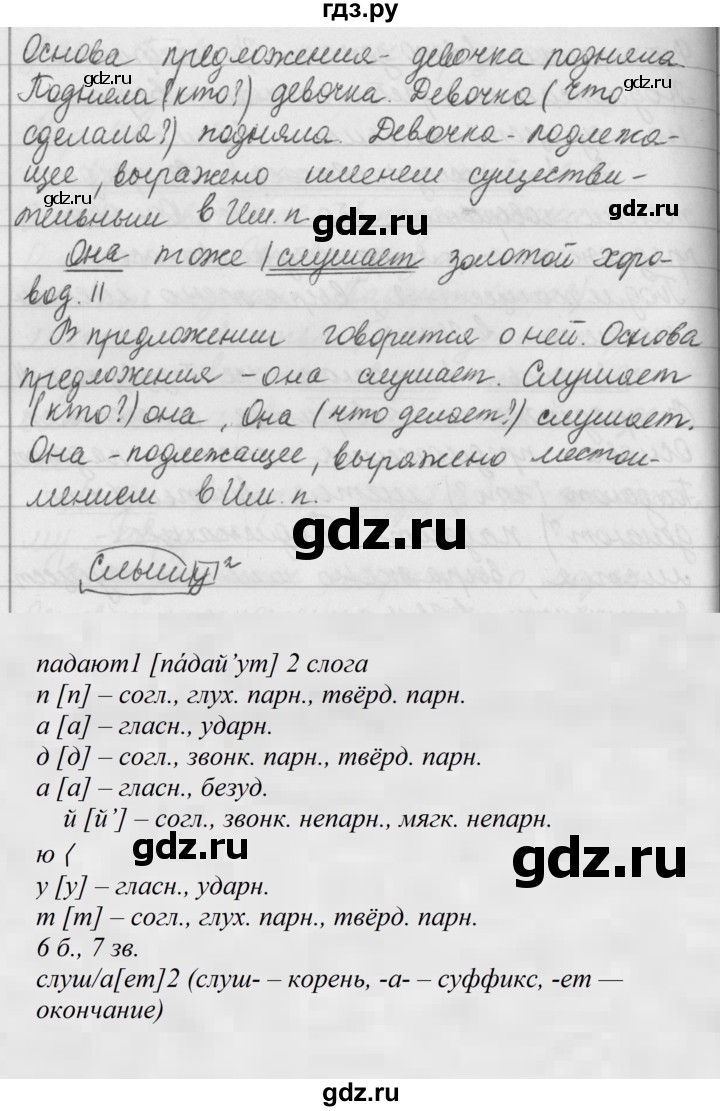 гдз.ру
Основа предложения - девочка подняла.
Подняла (кто?) девочка. Девочка (что
сделала?) подняла. Девочка - подлежа-
щее, выражено именем существи-
тельным в Им. п.
Она тоже | слушает золотой хоро-
вод. II
В предложении говорится о ней. Основа
предложения – она слушает. Слушает
(кто?) она, Она (что делает?) слушает.
Она - подлежащее, выражено местои-
мением в Им. п.
слышу²
падают1 [па́дай’ут] 2 слога
п [п] – согл., глух. парн., твёрд. парн.
а [а] – гласн., ударн.
д [д] – согл., звонк. парн., твёрд. парн.
а [а] – гласн., безуд.
й [й’] – согл., звонк. непарн., мягк. непарн.
ю ⟨
у [у] – гласн., ударн.
т [т] – согл., глух. парн., твёрд. парн.
6 б., 7 зв.
слуш/а[ет]2 (слуш- – корень, -а- – суффикс, -ет —
окончание)
gdz.ru
gdz.ru
gdz.ru
gdz.ru
gdz.ru
gdz.ru
gdz.ru
gdz.ru
gdz.ru
gdz.ru
gdz.ru